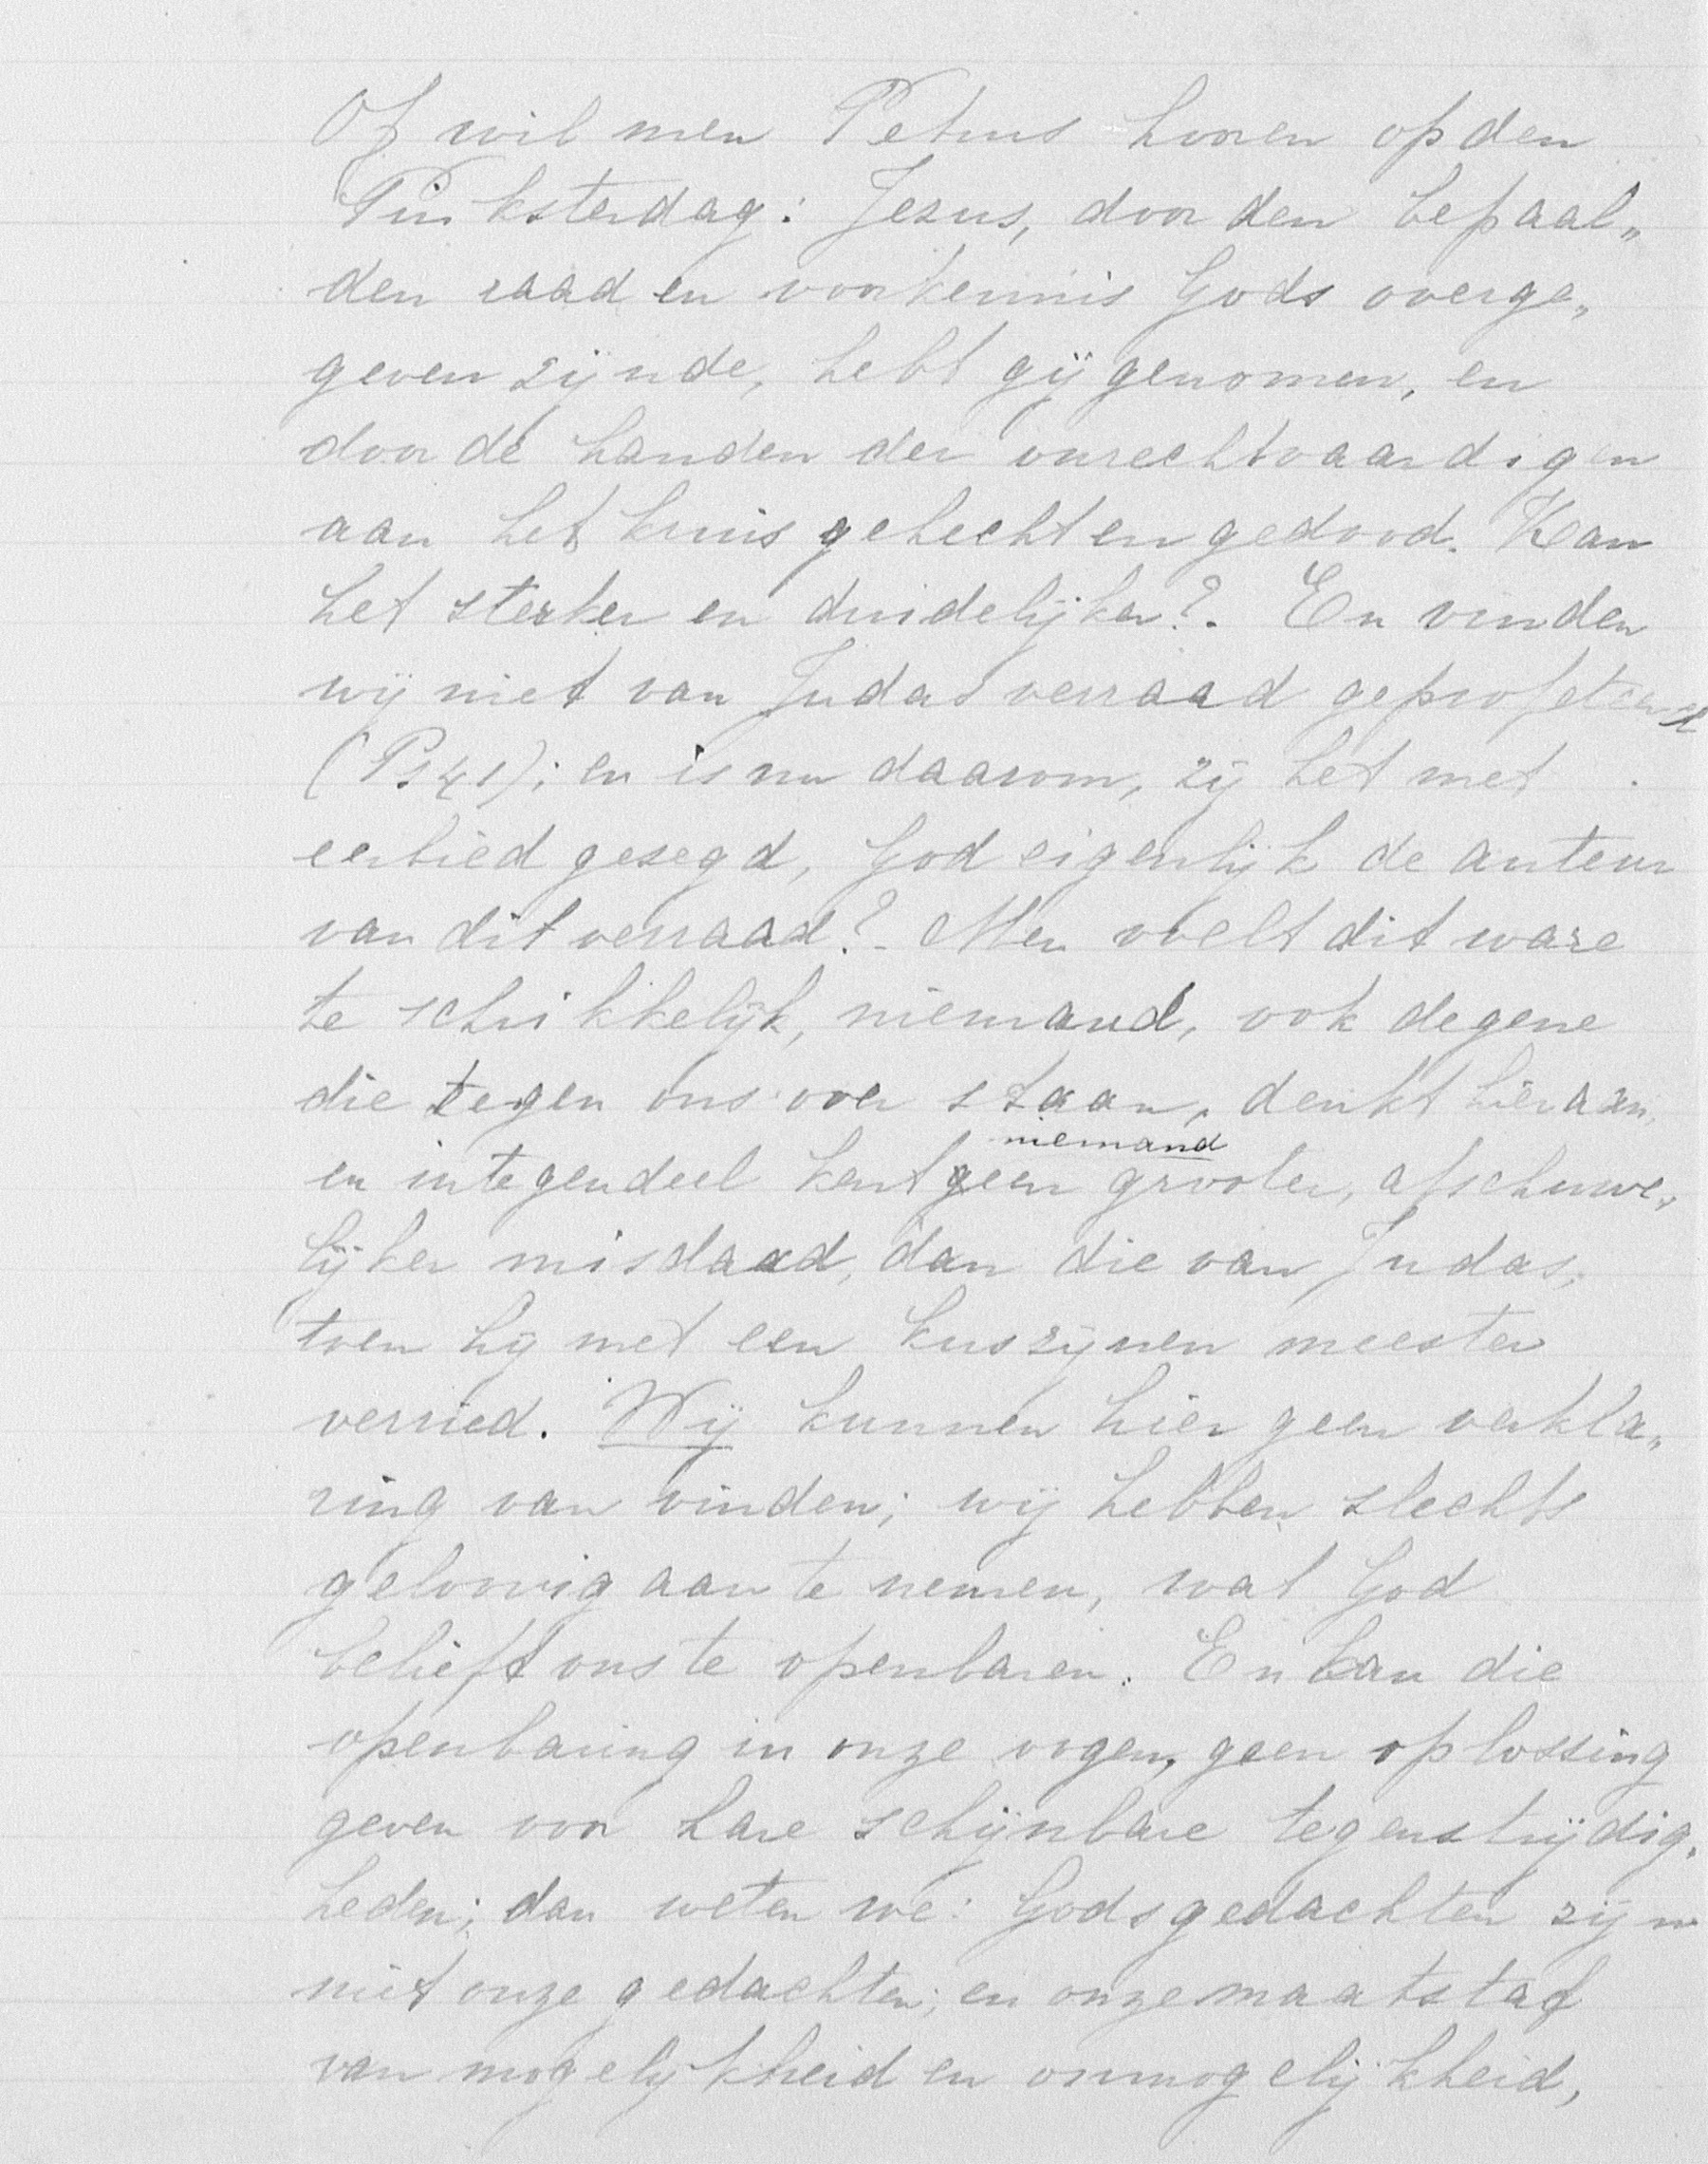 Of wil men Petrus hooren op den
Pinksterdag: Jezus, door den bepaal„
den raad en voorkennis Gods overge„
geven zijnde, hebt gij genomen, en
door de handen der onrechtvaardigen
aan het kruis gehecht en gedood. Kan
het sterker en duidelijker?. En vinden
wij niet van Judas verraad geprofeteerd
(Ps 41); en is nu daarom, zij het met
eerbied gezegd, God eigenlijk de auteur
van dit verraad? - Men voelt dit ware
te schrikkelijk, niemand, ook degene
die tegen ons over staan, denkt hieraan,
niemand
en integendeel kent geen grooter, afschuwe„
lijker misdaad, dan die van Judas,
toen hij met een kus zijnen meester
verried. Wij kunnen hier geen verkla„
ring van vinden; wij hebben slechts
geloovig aan te nemen, wat God
belieft ons te openbaren. En kan die
openbaring in onze oogen, geen oplossing
geven voor hare schijnbare tegenstrijdig„
heden; dan weten we: Gods gedachten zijn
niet onze gedachten; en onze maatstaf
van mogelijkheid en onmogelijkheid,